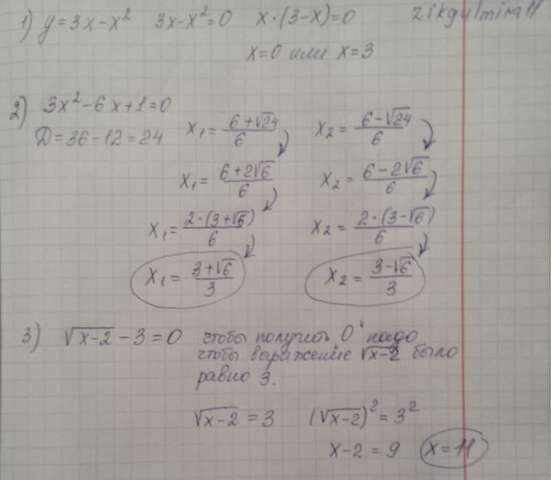 1) y=3x-x² 3x-x²=0 x·(3-x)=0
x=0 или x=3
2) 3x²-6x+1=0
D=36-12=24
x₁=(6+√24)/6 x₂=(6-√24)/6
x₁=(6+2√6)/6 x₂=(6-2√6)/6
x₁=(2·(3+√6))/6 x₂=(2·(3-√6))/6
x₁=(3+√6)/3 x₂=(3-√6)/3
3) √(x-2)-3=0 чтобы получить 0 надо
чтобы выражение √(x-2) было
равно 3.
√(x-2)=3 (√(x-2))²=3²
x-2=9 x=11